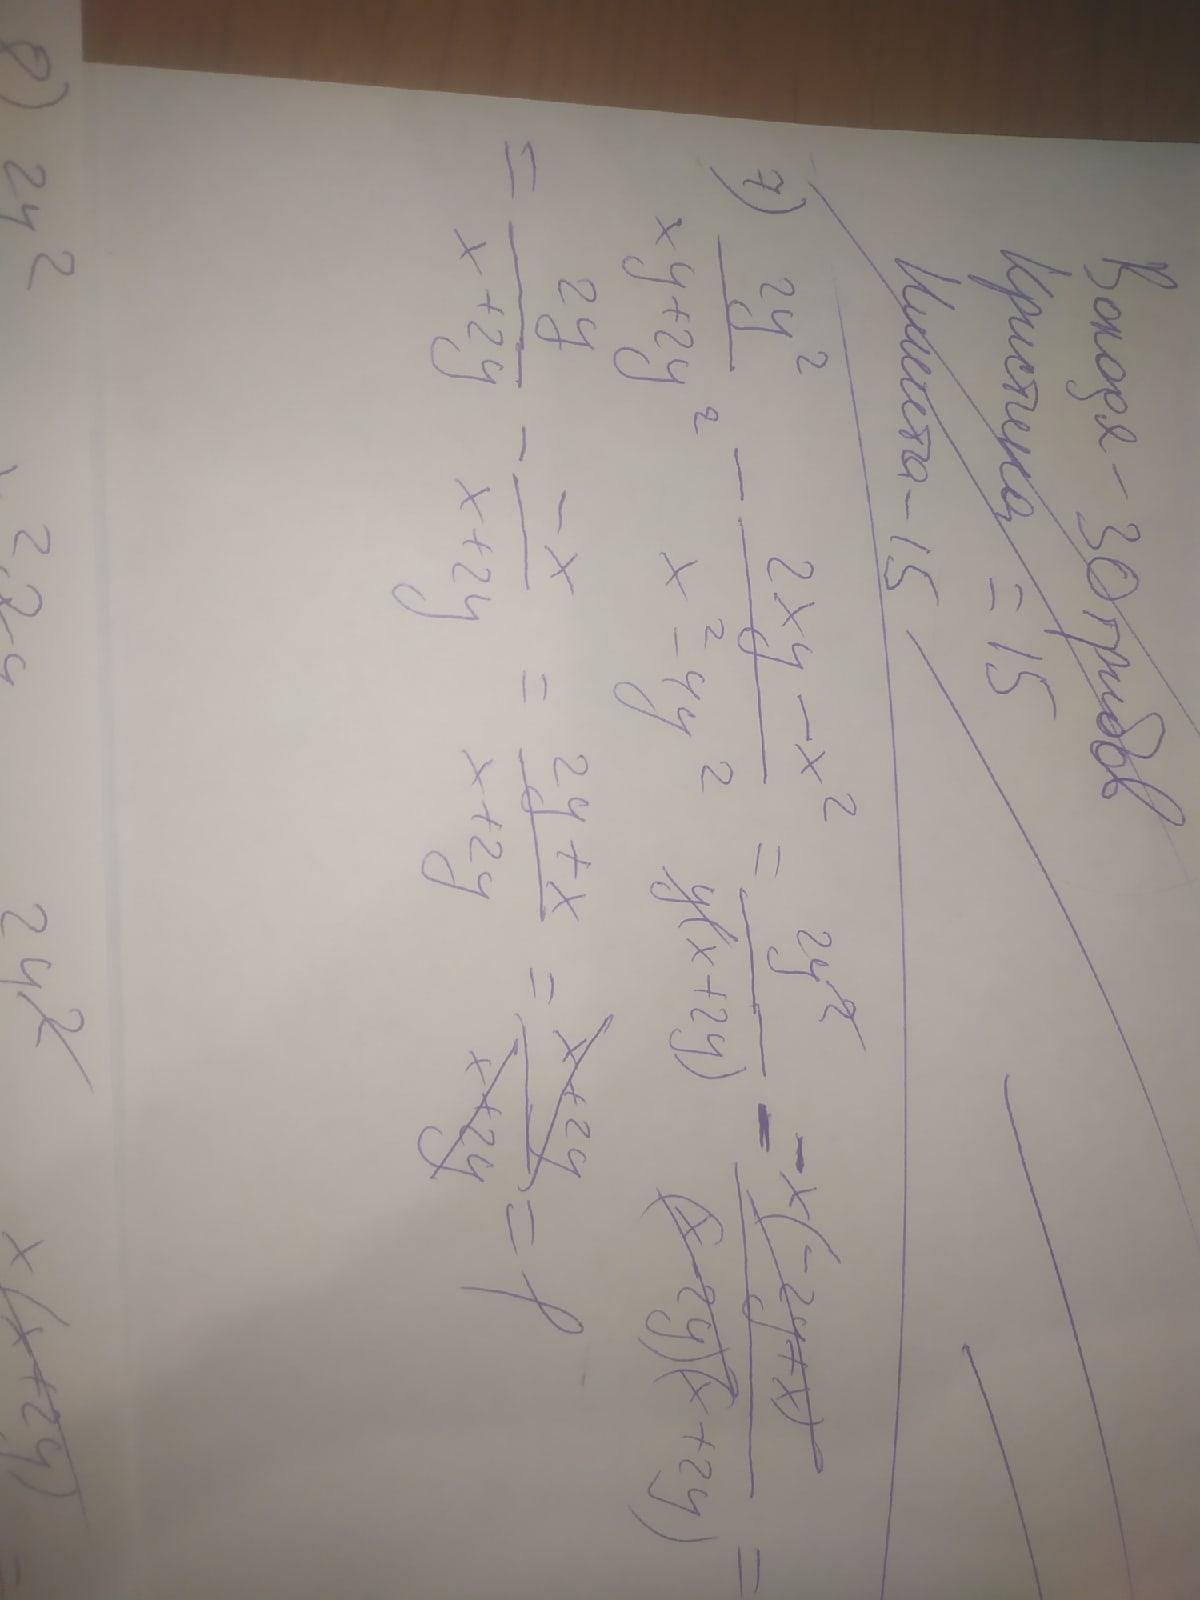 Володя - 30 грибов
Кристина = 15
Никита - 15
7) 2y²/(xy+2y²) - (2xy-x²)/(x²-4y²) = 2y²/(y(x+2y)) - -x(-2y+x)/((x-2y)(x+2y)) =
= 2y/(x+2y) - -x/(x+2y) = (2y+x)/(x+2y) = (x+2y)/(x+2y) = 1
8) 2y² 2y² x(x+2y) =